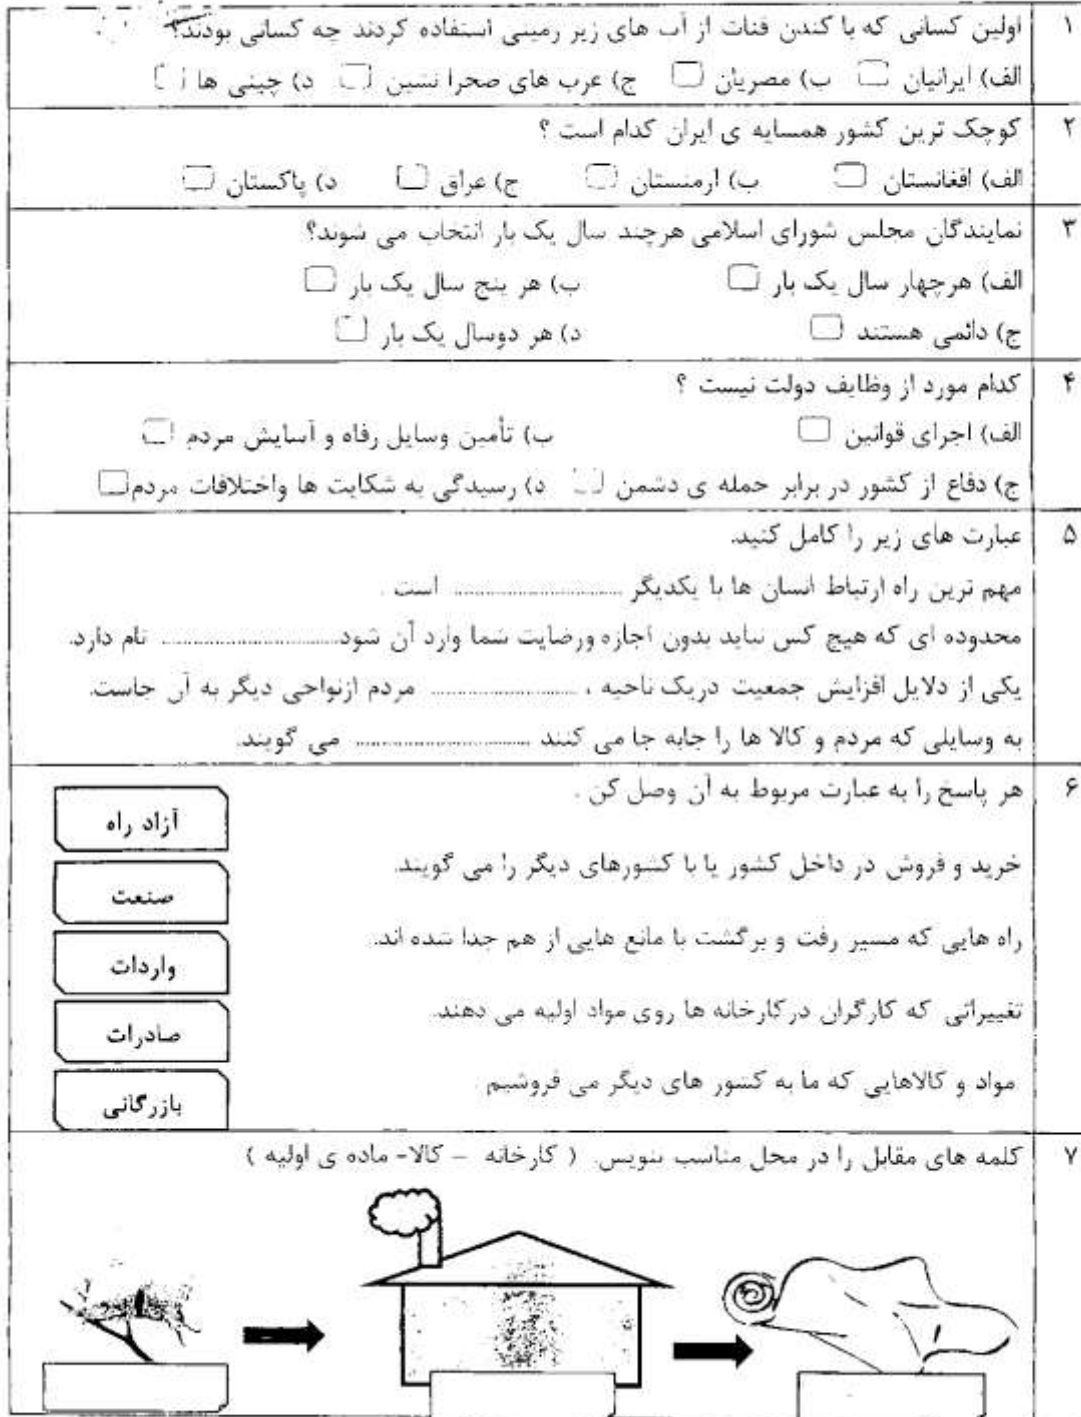 ۱ اولین کسانی که با کندن قنات از آب های زیر زمینی استفاده کردند چه کسانی بودند؟
الف) ایرانیان ب) مصریان ج) عرب های صحرا نشین د) چینی ها
۲ کوچک ترین کشور همسایه ی ایران کدام است ؟
الف) افغانستان ب) ارمنستان ج) عراق د) پاکستان
۳ نمایندگان مجلس شورای اسلامی هرچند سال یک بار انتخاب می شوند؟
الف) هرچهار سال یک بار ب) هر پنج سال یک بار
ج) دائمی هستند د) هر دوسال یک بار
۴ کدام مورد از وظایف دولت نیست ؟
الف) اجرای قوانین ب) تأمین وسایل رفاه و آسایش مردم
ج) دفاع از کشور در برابر حمله ی دشمن د) رسیدگی به شکایت ها واختلافات مردم
۵ عبارت های زیر را کامل کنید.
مهم ترین راه ارتباط انسان ها با یکدیگر .................... است .
محدوده ای که هیچ کس نباید بدون اجازه ورضایت شما وارد آن شود.................... نام دارد.
یکی از دلایل افزایش جمعیت دریک ناحیه ، .................... مردم ازنواحی دیگر به آن جاست.
به وسایلی که مردم و کالا ها را جابه جا می کنند .................... می گویند.
۶ هر پاسخ را به عبارت مربوط به آن وصل کن .
آزاد راه
خرید و فروش در داخل کشور یا با کشورهای دیگر را می گویند.
صنعت
راه هایی که مسیر رفت و برگشت با مانع هایی از هم جدا شده اند.
واردات
تغییراتی که کارگران درکارخانه ها روی مواد اولیه می دهند.
صادرات
مواد و کالاهایی که ما به کشور های دیگر می فروشیم
بازرگانی
۷ کلمه های مقابل را در محل مناسب بنویس. ( کارخانه – کالا- ماده ی اولیه )